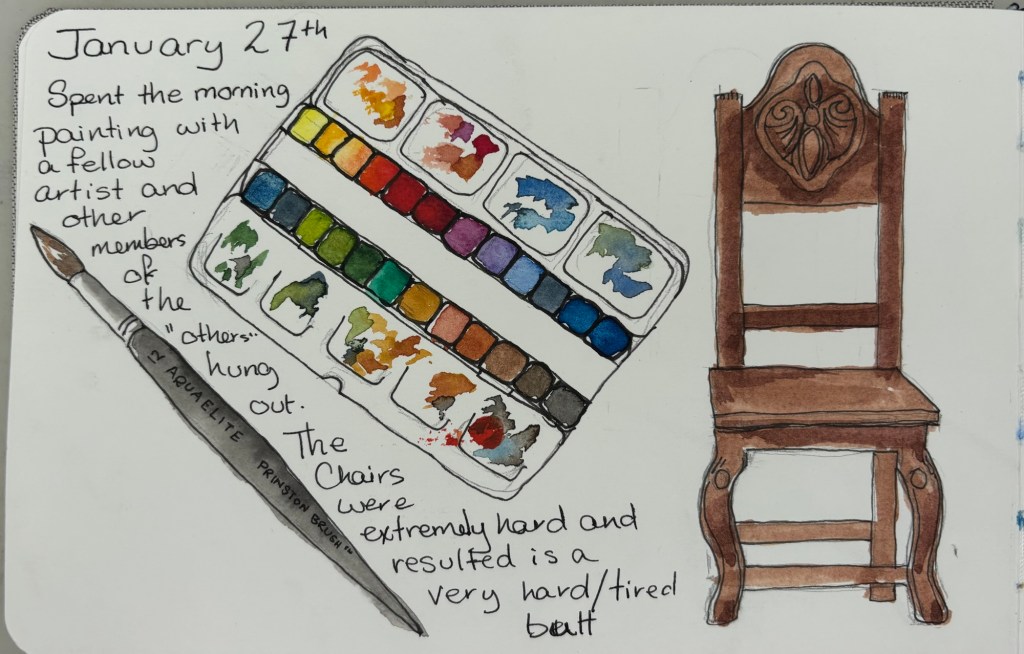 January 27th
Spent the morning
painting with
a fellow
artist and
other
members
of
the
"others"
hung
out.
The
Chairs
were
extremely hard and
resulted is a
very hard/tired
butt
12 AQUAELITE
PRINSTON BRUSH™